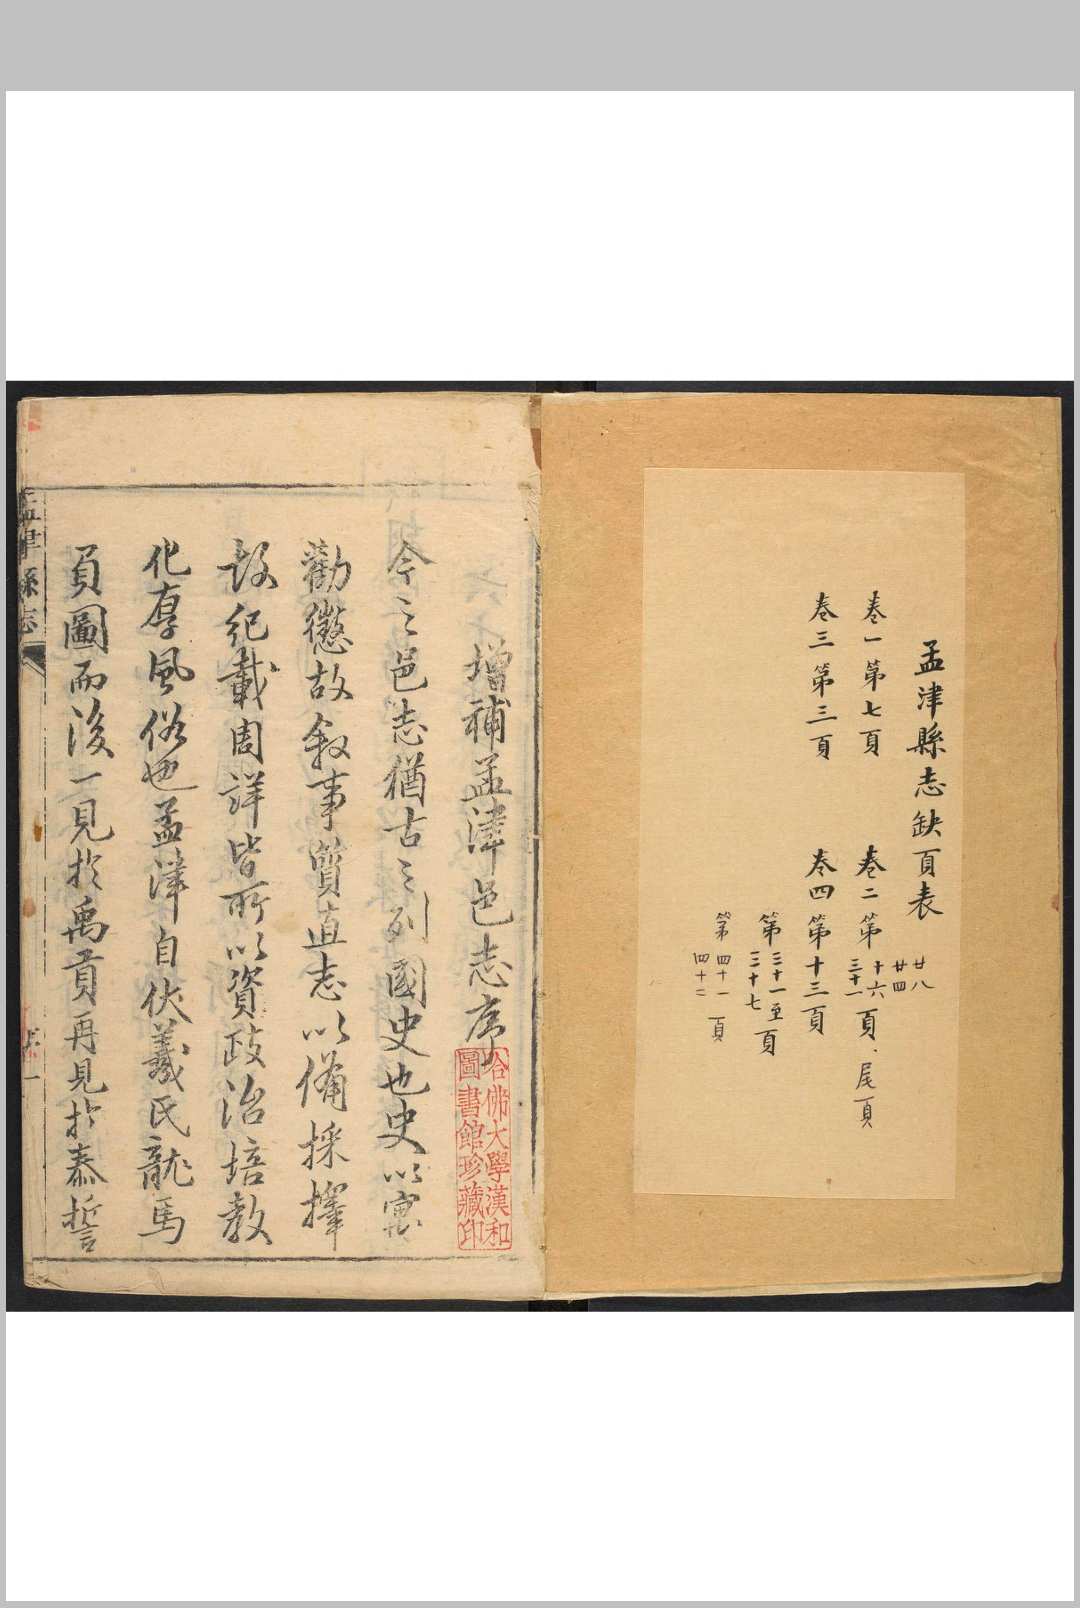 孟津縣志缺頁表
卷一第七頁
卷二第十六頁、尾頁
三十一
廿四
廿八
卷三第三頁
卷四第十三頁
第三十一至三十七頁
第四十一頁
四十二
增補孟津邑志序
今之邑志猶古之列國史也史以寓
勸懲故叙事質直志以備採擇
故紀載周詳皆所以資政治培教
化厚風俗也孟津自伏羲氏龍馬
負圖而後一見於禹貢再見於泰誓
哈佛大學漢和
圖書館珍藏印
孟津縣志
序
一